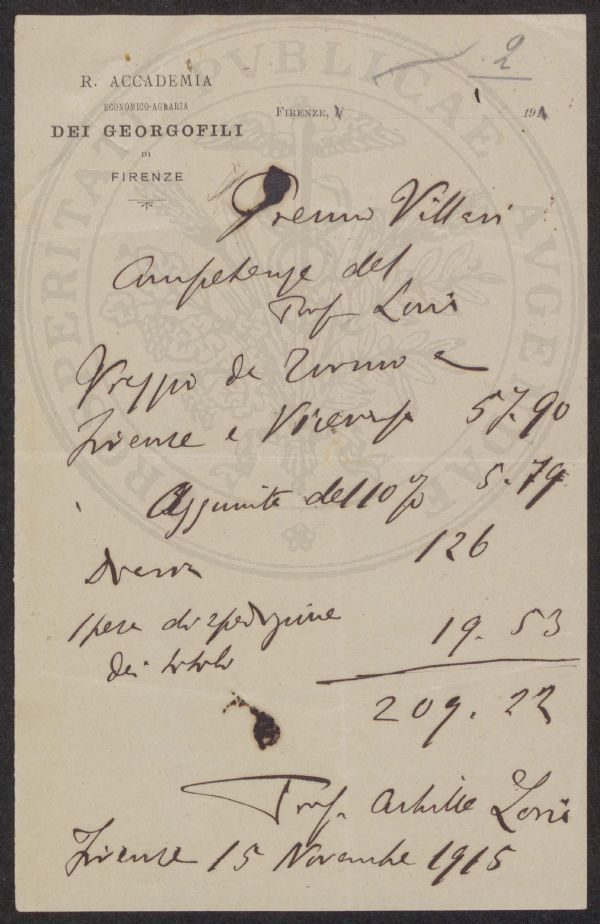 2
R. ACCADEMIA
ECONOMICO-AGRARIA
DEI GEORGOFILI
DI
FIRENZE
FIRENZE, 191
PROSPERITATI PUBLICAE AUGENDAE
Premio Villari
Competenze del
Prof Loria
Viaggio da Torino a
Firenze e Viceversa 57.90
Aggiunta del 10% 5.79
Diaria 126
Spese di spedizione 19.53
dei titoli
209.22
Prof. Achille Loria
Firenze 15 Novembre 1915